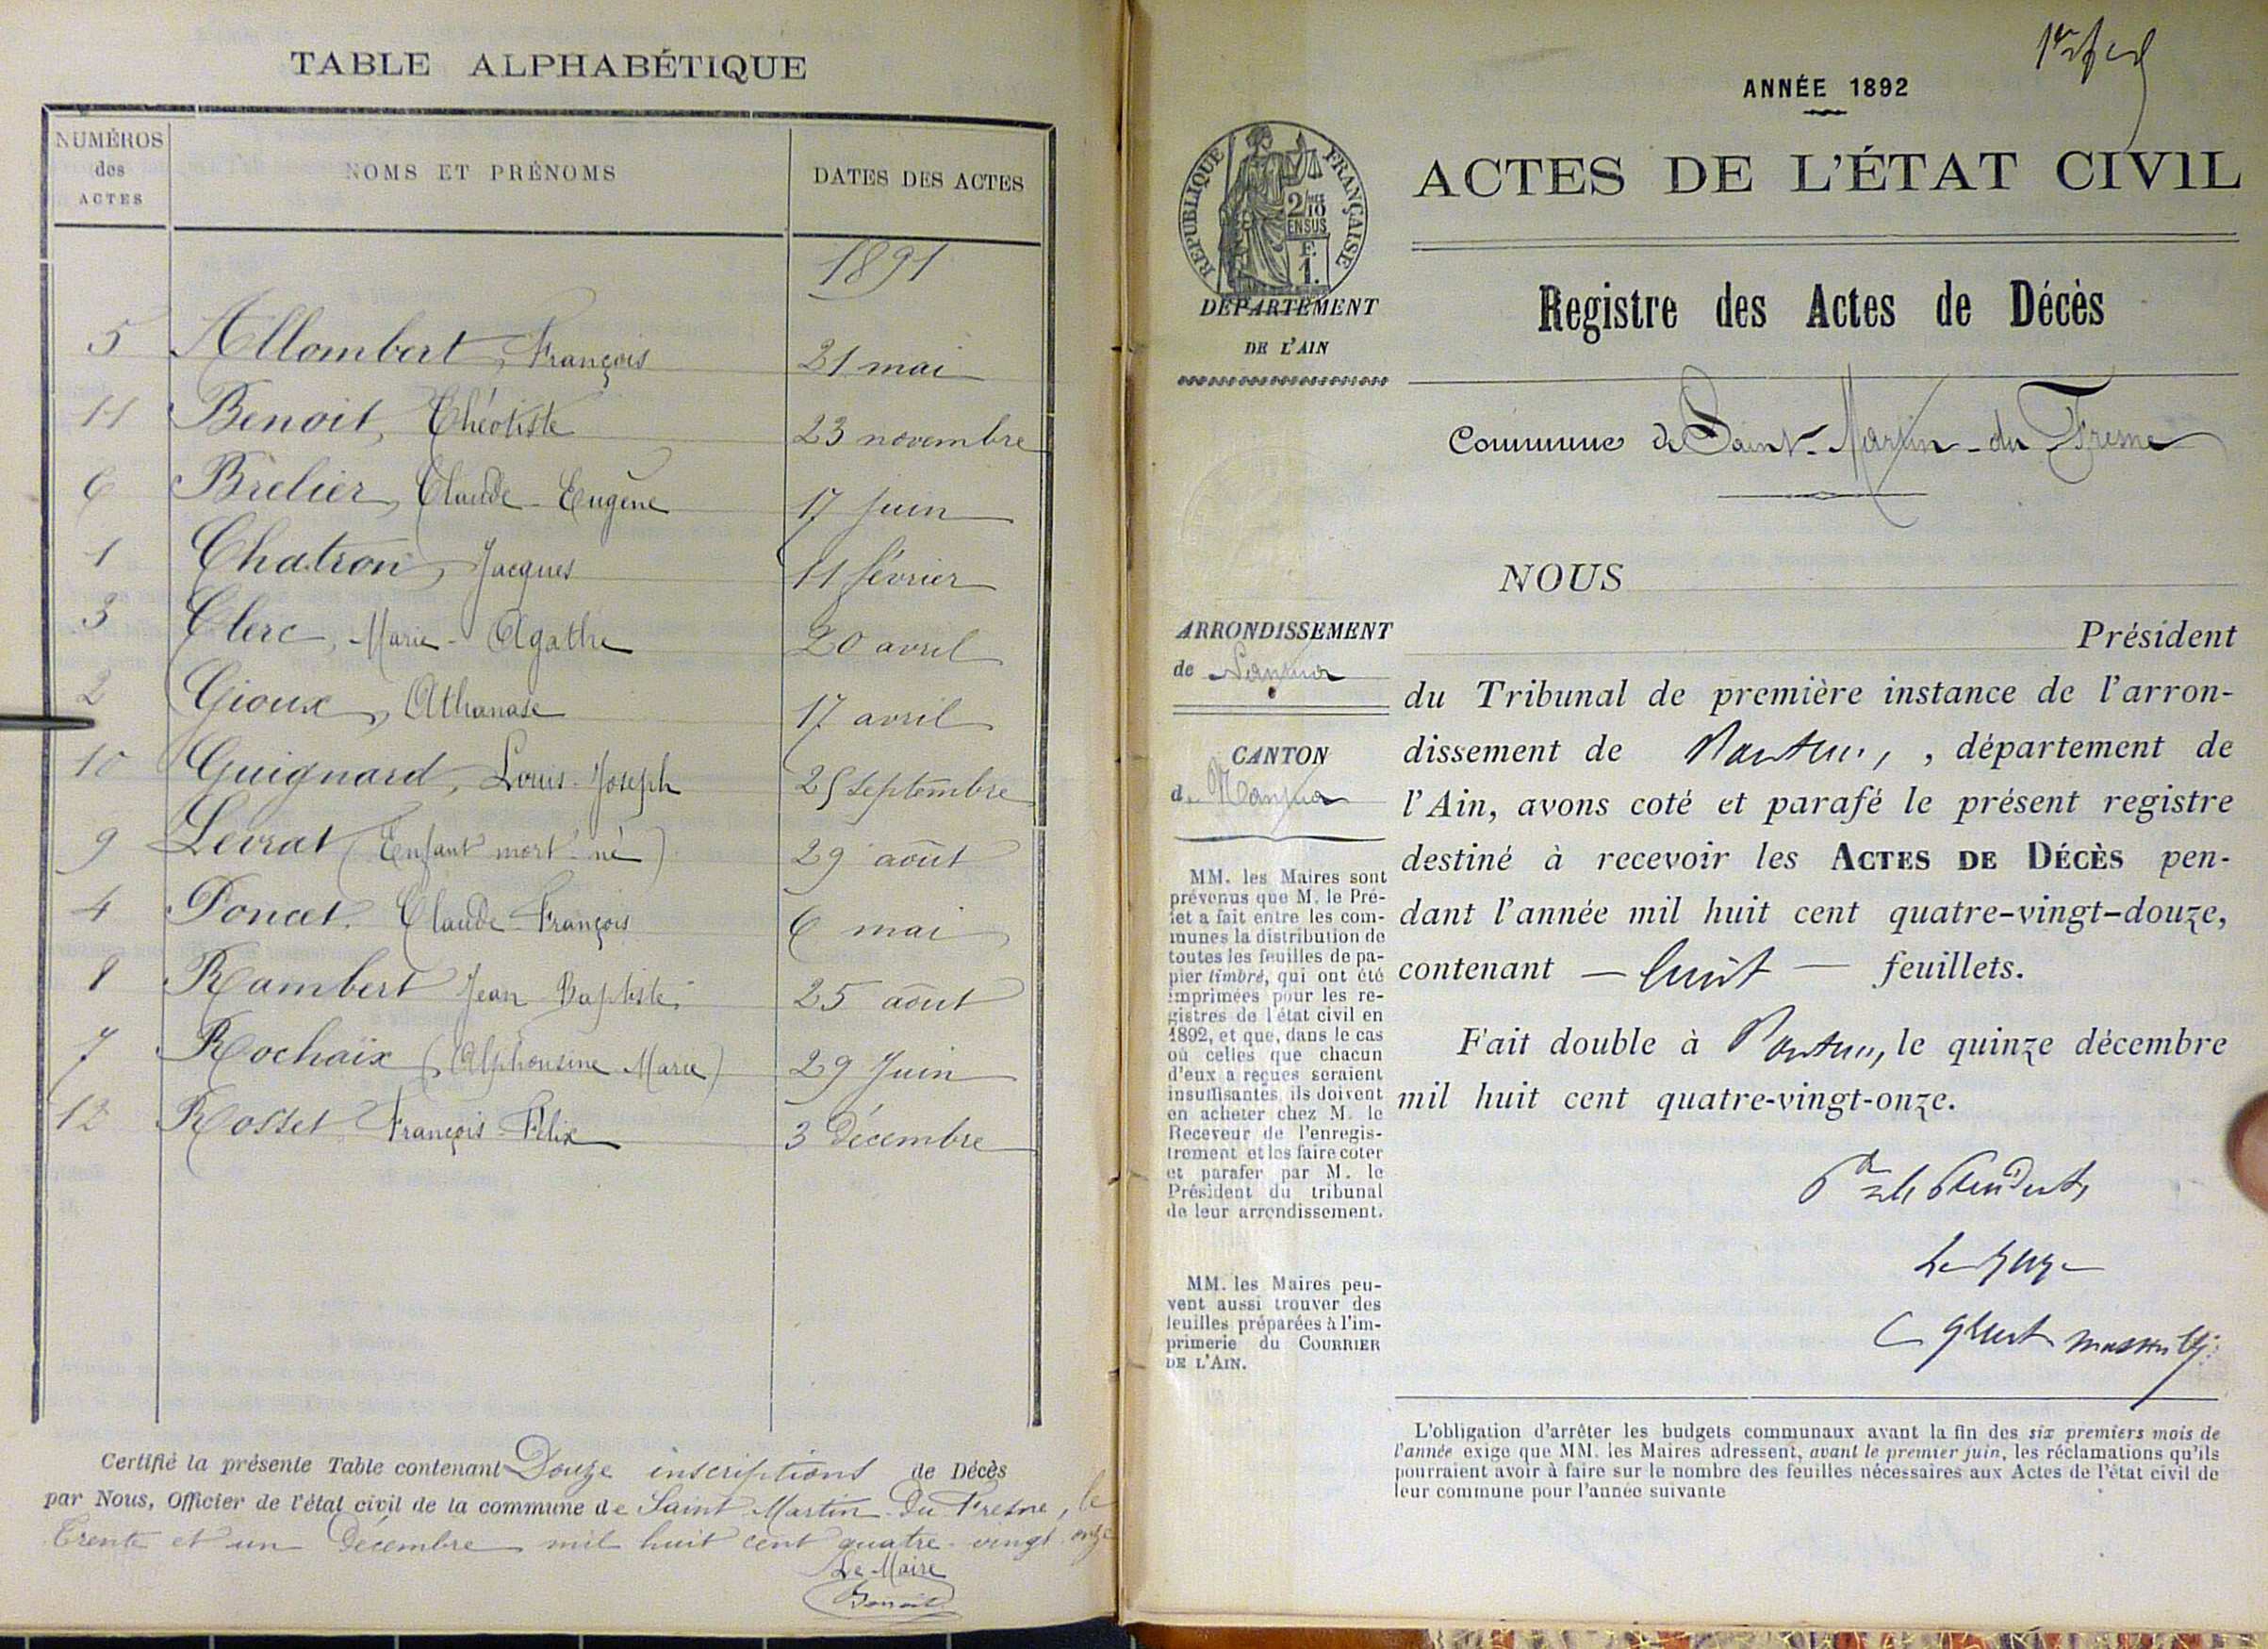 TABLE ALPHABÉTIQUE
NUMÉROS des ACTES
NOMS ET PRÉNOMS
DATES DES ACTES
1891
5 Allombert, François 21 mai
11 Benoit, Théotiste 23 novembre
6 Brelier, Claude-Eugène 17 juin
1 Chatron, Jacques 11 février
3 Clerc, Marie-Agathe 20 avril
2 Gioux, Athanase 17 avril
10 Guignard, Louis-Joseph 25 septembre
9 Levrat (Enfant mort-né) 29 août
4 Poncet Claude-François 6 mai
8 Rambert Jean-Baptiste 25 août
7 Rochaix (Alphonsine Marie) 29 Juin
12 Rosset François-Félix 3 Décembre
Certifié la présente Table contenant Douze inscriptions de Décès
par Nous, Officier de l'état civil de la commune de Saint Martin-Du Fresne, le
Trente et un Décembre mil huit cent quatre-vingt onze
Le Maire
Benoit
ANNÉE 1892
ACTES DE L'ÉTAT CIVIL
RÉPUBLIQUE FRANÇAISE
2/10
EN SUS
F.
1.
DÉPARTEMENT
DE L'AIN
Registre des Actes de Décès
Commune de Saint-Martin-du Fresne
NOUS
Président
du Tribunal de première instance de l'arron-
dissement de Nantua, département de
l'Ain, avons coté et parafé le présent registre
destiné à recevoir les ACTES DE DÉCÈS pen-
dant l'année mil huit cent quatre-vingt-douze,
contenant — huit — feuillets.
Fait double à Nantua, le quinze décembre
mil huit cent quatre-vingt-onze.
Le Juge
ARRONDISSEMENT
de Nantua
CANTON
de Nantua
MM. les Maires sont
prévenus que M. le Pré-
fet a fait entre les com-
munes la distribution de
toutes les feuilles de pa-
pier timbré, qui ont été
imprimées pour les re-
gistres de l'état civil en
1892, et que, dans le cas
où celles que chacun
d'eux a reçues seraient
insuffisantes, ils doivent
en acheter chez M. le
Receveur de l'enregis-
trement et les faire coter
et parafer par M. le
Président du tribunal
de leur arrondissement.
MM. les Maires peu-
vent aussi trouver des
feuilles préparées à l'im-
primerie du COURRIER
DE L'AIN.
L'obligation d'arrêter les budgets communaux avant la fin des six premiers mois de
l'année exige que MM. les Maires adressent, avant le premier juin, les réclamations qu'ils
pourraient avoir à faire sur le nombre des feuilles nécessaires aux Actes de l'état civil de
leur commune pour l'année suivante